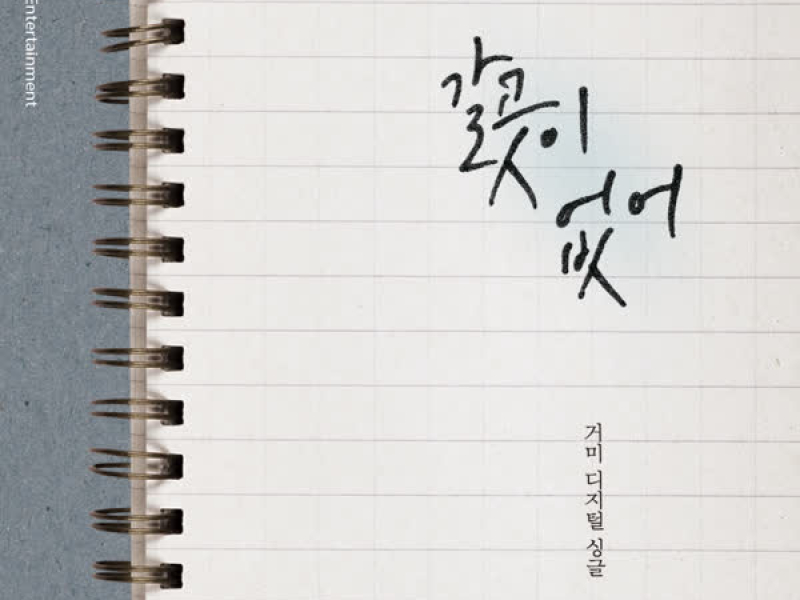 Entertainment
갈곳이
없어
거미 디지털 싱글